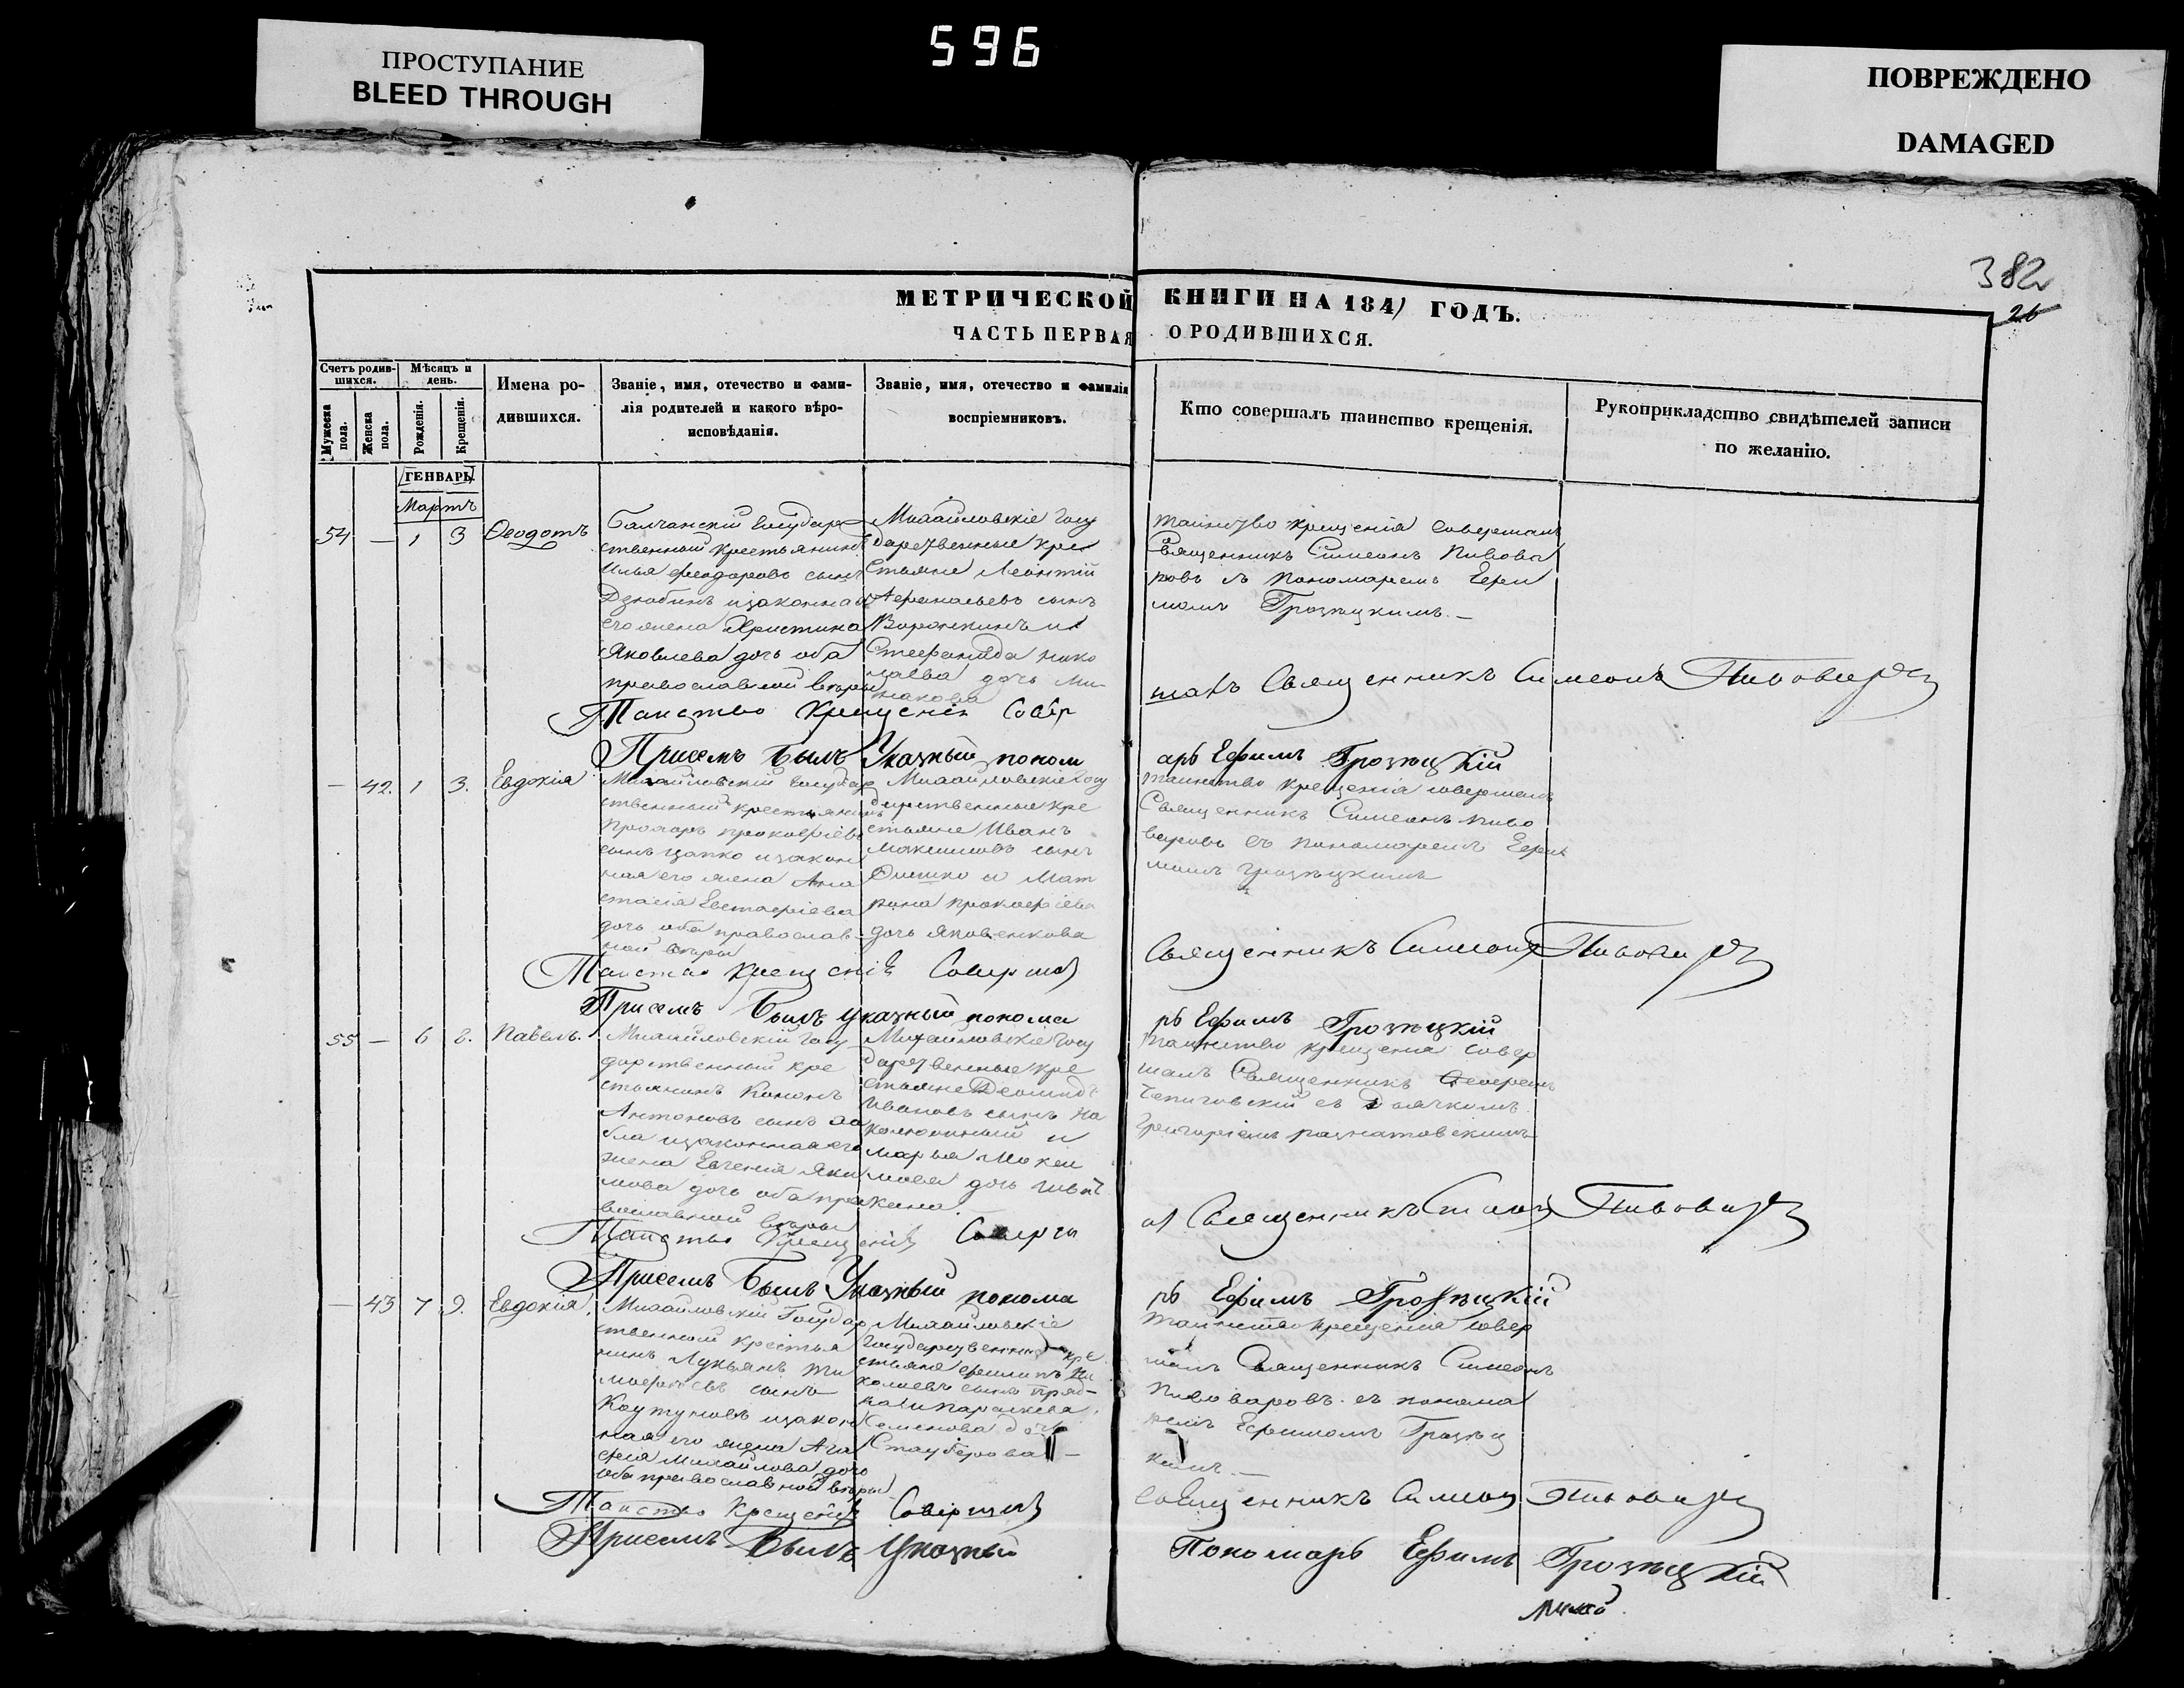 596
ПРОСТУПАНИЕ
BLEED THROUGH
ПОВРЕЖДЕНО
DAMAGED
382
26
МЕТРИЧЕСКОЙ КНИГИ НА 1841 ГОДЪ.
ЧАСТЬ ПЕРВАЯ О РОДИВШИХСЯ.
Счетъ родив-
шихся.
Мужеска
пола.
Женска
пола.
Мѣсяцъ и
день.
Рожденія.
Крещенія.
Имена ро-
дившихся.
Званіе, имя, отечество и фами-
лія родителей и какого вѣро-
исповѣданія.
Званіе, имя, отечество и фамилія
воспріемниковъ.
Кто совершалъ таинство крещенія.
Рукоприкладство свидѣтелей записи
по желанію.
ГЕНВАРЬ
Мартъ
54 — 1 3 Ѳеодотъ
Балчанскій государ
ственный крестьянинъ
Илья Феодоровъ сынъ
Дзюбинъ изаконная
его жена Христина
Яковлева дочь оба
православной вѣры
Михайловскіе госу
дарственные кре
стьяне Леонтій
Афанасьевъ сынъ
Воронкинъ и
Стефанида Нико
лаева дочь Ми-
накова
таинство крещенія совершалъ
Священникъ Симеонъ Пивова
ровъ съ пономаремъ Ефи
момъ Грозицкимъ. —
Таиство Крещенія Совер
шалъ Священникъ Симеонъ Пивоваръ
Присемъ былъ Указный поном
арь Ефимъ Грозицкій
— 42. 1 3. Евдокія
Михайловскій государ
ственный крестьянинъ
Прохоръ Прокофіевъ
сынъ Цапко изакон
ная его жена Ана
стасія Евстафіева
дочь оба православ-
ной вѣры
Михайловскіе госу
дарственные кре
стьяне Иванъ
Максимовъ сынъ
Онишко и Мат
рона Прокофіева
дочь Яковенкова
таинство крещенія совершалъ
Священникъ Симеонъ Пиво
варовъ съ пономаремъ Ефи
момъ Грозицкимъ
Таиство Крещенія Совершалъ
Священникъ Симеонъ Пивоваръ
Присемъ былъ указный понома
рь Ефимъ Грозицкій
55 — 6 8. Павелъ.
Михайловскій госу
дарственный кре
стьянинъ Кононъ
Антоновъ сынъ
изаконная его
жена Евгенія Яки
мова дочь оба пра
вославной вѣры
Михайловскіе госу
дарственные кре
стьяне
Ивановъ сынъ На
и
Марья Моки
мова дочь
таинство крещенія совер
шалъ Священникъ
съ Дьячкомъ
Григоріемъ
Таиство Крещенія Соверша
лъ Священникъ Симеонъ Пивоваръ
Присемъ былъ Указный понома
рь Ефимъ Грозицкій
— 43 7 9. Евдокія.
Михайловскій Государ
ственный крестья
нинъ Лукьянъ Ти
мофеевъ сынъ
Коутуновъ изакон
ная его жена Ага
фія Михайлова дочь
оба православной вѣры
Михайловскіе
государственные кре
стьяне Филипъ Ни
колаевъ сынъ Пряд-
ка и Параскева
Семенова дочь
—
таинство крещенія совер
шалъ Священникъ Симеонъ
Пивоваровъ съ понома
ремъ Ефимомъ Грозиц
кимъ. —
Таиство Крещенія Совершалъ
Священникъ Симеонъ Пивоваръ
Присемъ былъ Указный
Пономарь Ефимъ Грозицкій